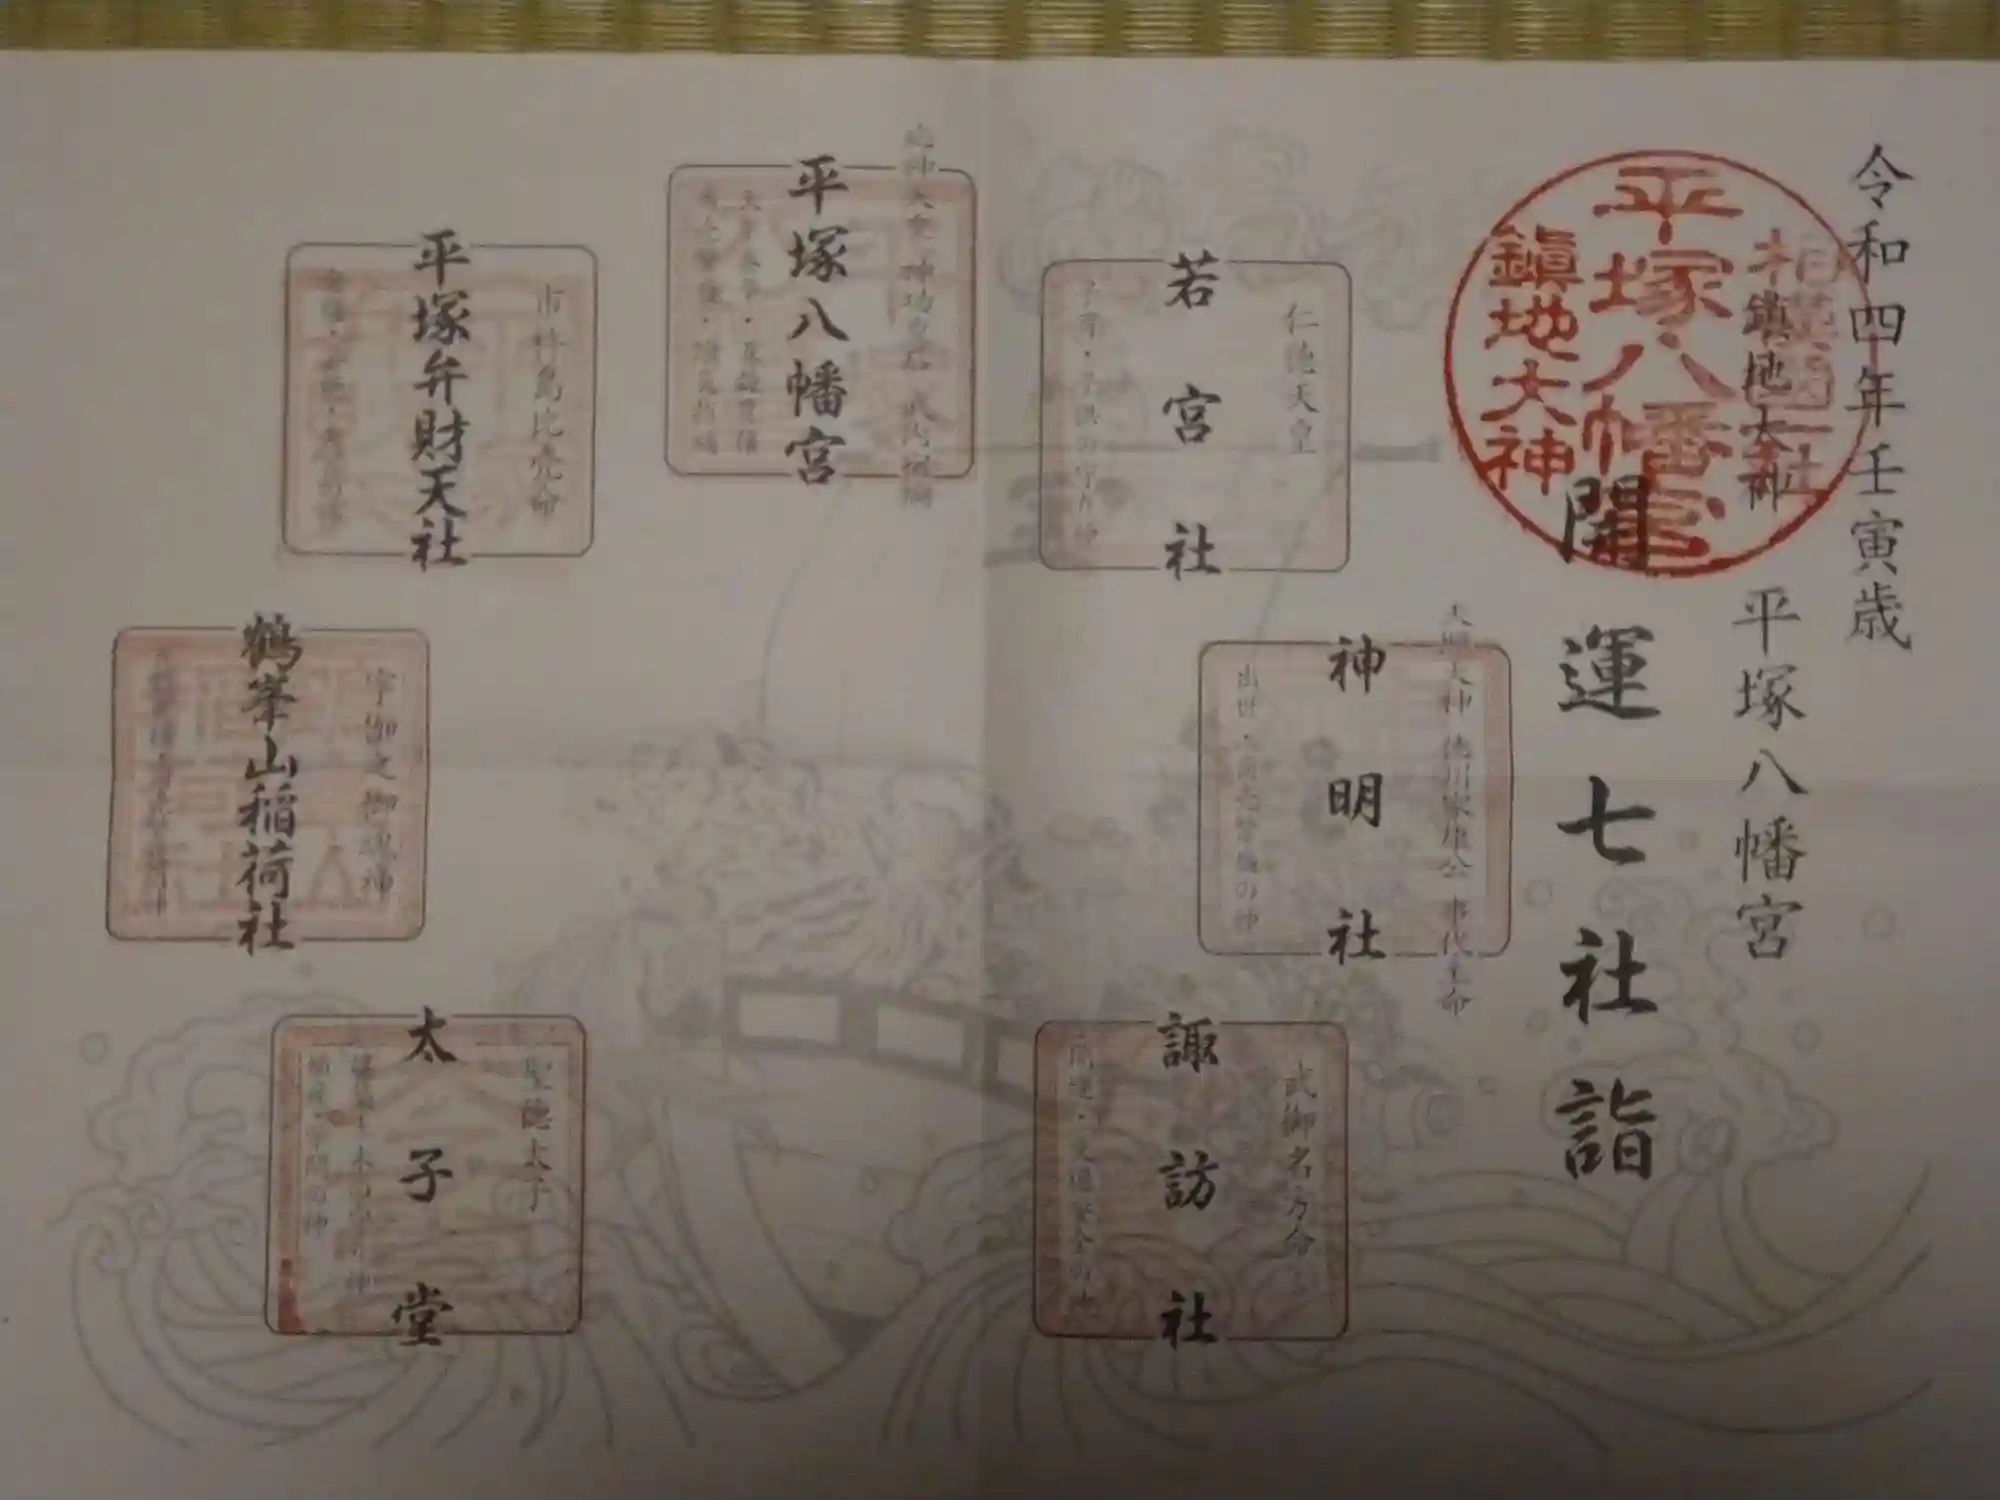 令和四年壬寅歳
鎮地大神
平塚八幡宮
相模國一社
平塚八幡宮
鎮地大神
開運七社詣
天照大神 徳川家康公 事代主命
神明社
出世・商売繁盛の神
武御名方命
諏訪社
開運・交通安全の神
仁徳天皇
若宮社
子育・子供の守り神
応神天皇 神功皇后 武内宿禰
平塚八幡宮
市杵島比売命
平塚弁財天社
宇伽之御魂神
鶴峯山稲荷社
聖徳太子
太子堂